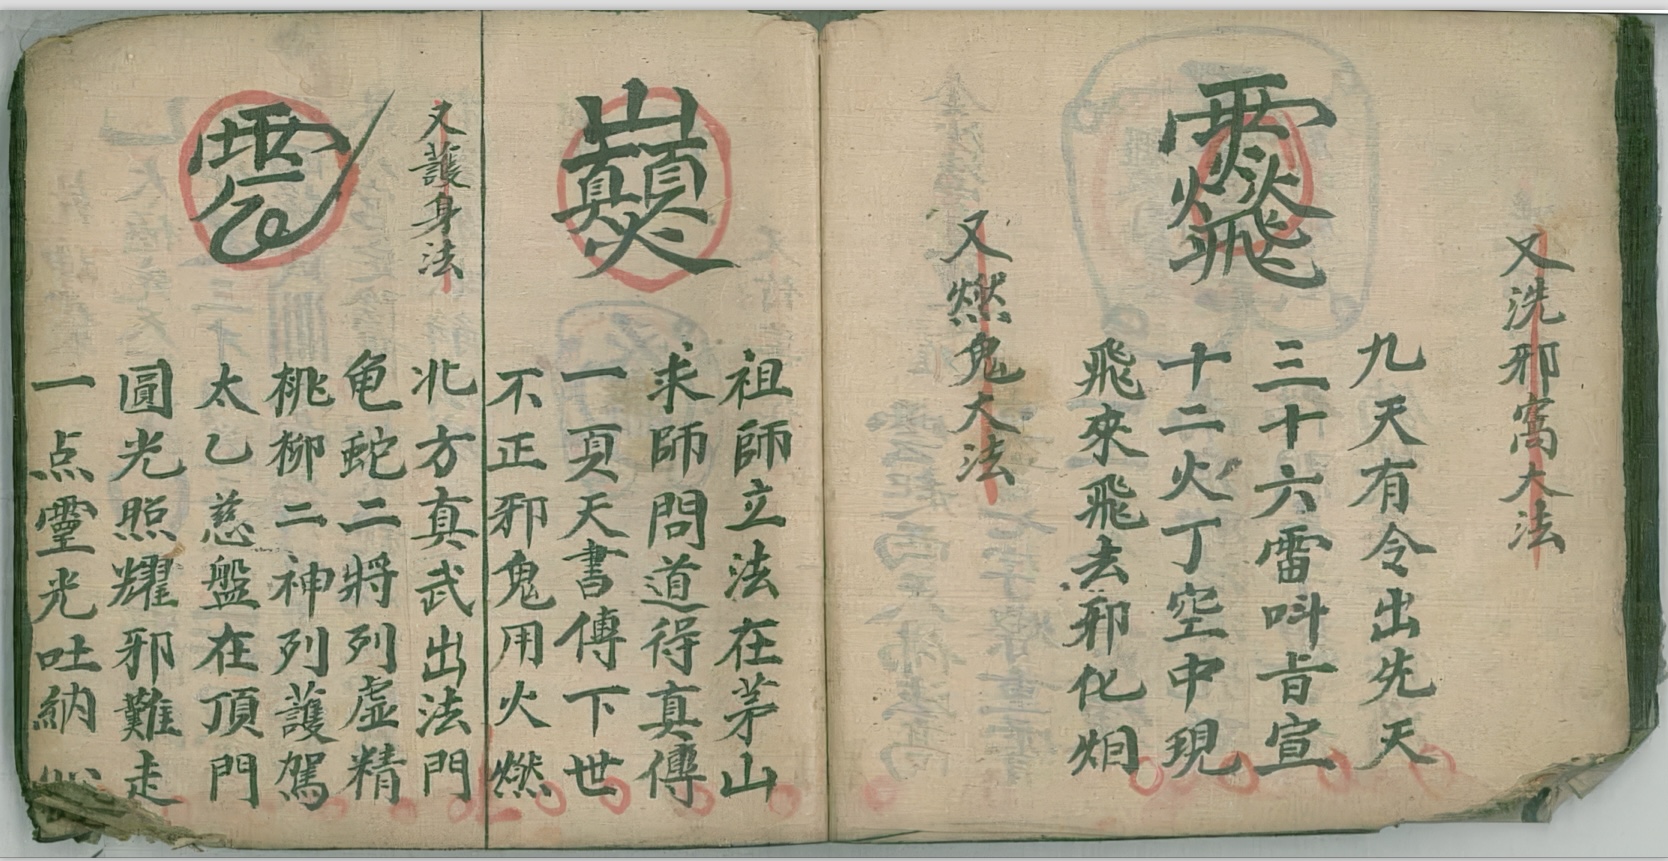 又洗邪窩大法
九天有令出先天
三十六雷呌㫖宣
十二火丁空中現
飛來飛去邪化烟
又燃鬼大法
祖師立法在茅山
求師問道得真傳
一頁天書傳下世
不正邪鬼用火燃
又護身法
北方真武出法門
龟蛇二將列虛精
桃柳二神列護駕
太乙慈盤在頂門
圓光照耀邪難走
一点靈光吐納